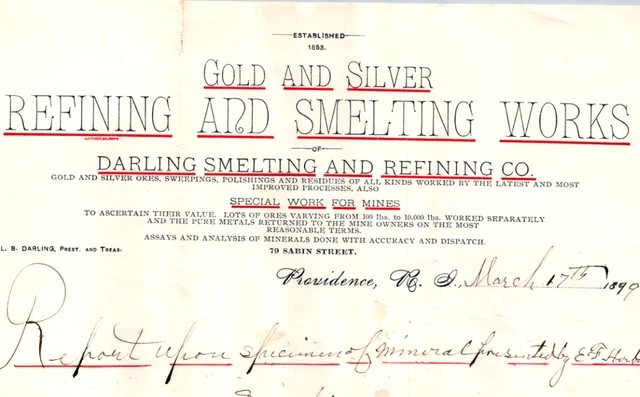 ESTABLISHED
1853.
GOLD AND SILVER
REFINING AND SMELTING WORKS
OF
DARLING SMELTING AND REFINING CO.
GOLD AND SILVER ORES, SWEEPINGS, POLISHINGS AND RESIDUES OF ALL KINDS WORKED BY THE LATEST AND MOST
IMPROVED PROCESSES, ALSO
SPECIAL WORK FOR MINES
TO ASCERTAIN THEIR VALUE. LOTS OF ORES VARYING FROM 100 lbs. to 10,000 lbs. WORKED SEPARATELY
AND THE PURE METALS RETURNED TO THE MINE OWNERS ON THE MOST
REASONABLE TERMS.
ASSAYS AND ANALYSIS OF MINERALS DONE WITH ACCURACY AND DISPATCH.
L. B. DARLING, PREST. AND TREAS.
70 SABIN STREET.
Providence, R. I., March 17th 1899
Report upon specimen of mineral presented by E F